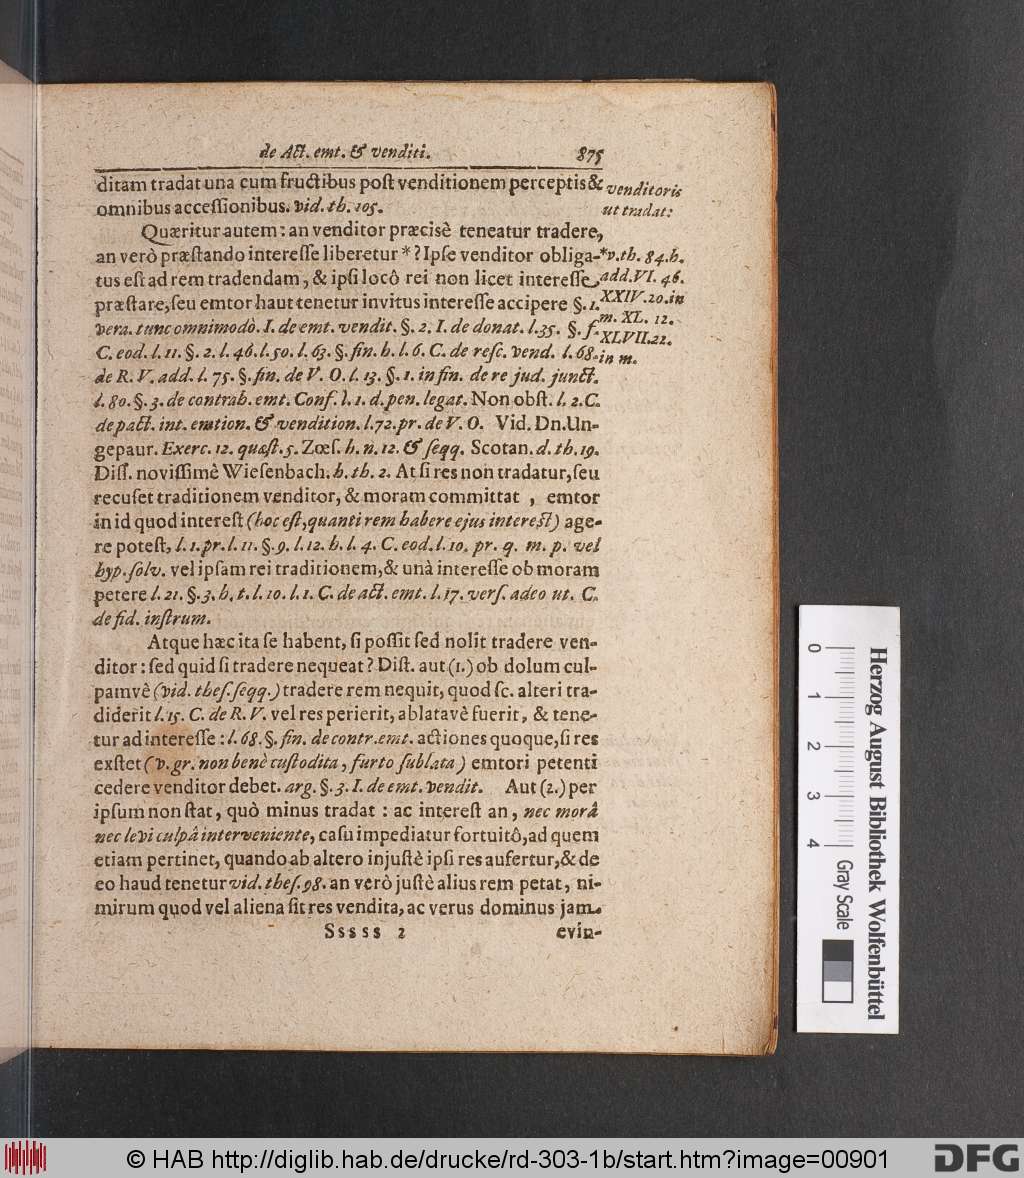 de Act. emt. & venditi. 875
ditam tradat una cum fructibus poſt venditionem perceptis &
omnibus acceſſionibus. vid. th. 105.
Quæritur autem: an venditor præcisè teneatur tradere,
an verò præſtando intereſſe liberetur *? Ipſe venditor obliga-
tus eſt ad rem tradendam, & ipſi locô rei non licet intereſſe
præſtare, ſeu emtor haut tenetur invitus intereſſe accipere §. 1.
vers. tunc omnimodò. I. de emt. vendit. §. 2. I. de donat. l. 35. §. f.
C. eod. l. 11. §. 2. l. 46. l. 50. l. 63. §. fin. h. l. 6. C. de reſc. vend. l. 68.
de R. V. add. l. 75. §. fin. de V. O. l. 13. §. 1. in fin. de re jud. junct.
l. 80. §. 3. de contrah. emt. Conf. l. 1. d. pen. legat. Non obſt. l. 2. C.
de pact. int. emtion. & vendition. l. 72. pr. de V. O. Vid. Dn. Un-
gepaur. Exerc. 12. quæſt. 5. Zœſ. h. n. 12. & ſeqq. Scotan. d. th. 19.
Diſſ. noviſſimè Wieſenbach. h. th. 2. At ſi res non tradatur, ſeu
recuſet traditionem venditor, & moram committat, emtor
in id quod intereſt (hoc eſt, quanti rem habere ejus intereſt) age-
re poteſt, l. 1. pr. l. 11. §. 9. l. 12. h. l. 4. C. eod. l. 10. pr. q. m. p. vel
hyp. ſolv. vel ipſam rei traditionem, & unà intereſſe ob moram
petere l. 21. §. 3. h. t. l. 10. l. 1. C. de act. emt. l. 17. verſ. adeo ut. C.
de fid. inſtrum.
Atque hæc ita ſe habent, ſi poſſit ſed nolit tradere ven-
ditor: ſed quid ſi tradere nequeat? Diſt. aut (1.) ob dolum cul-
pamvè (vid. theſ. ſeqq.) tradere rem nequit, quod ſc. alteri tra-
diderit l. 15. C. de R. V. vel res perierit, ablatavè fuerit, & tene-
tur ad intereſſe: l. 68. §. fin. de contr. emt. actiones quoque, ſi res
exſtet (v. gr. non benè cuſtodita, furto ſublata) emtori petenti
cedere venditor debet. arg. §. 3. I. de emt. vendit. Aut (2.) per
ipſum non ſtat, quò minus tradat: ac intereſt an, nec morâ
nec levi culpâ interveniente, caſu impediatur fortuitô, ad quem
etiam pertinet, quando ab altero injuſtè ipſi res aufertur, & de
eo haud tenetur vid. theſ. 98. an verò juſtè alius rem petat, ni-
mirum quod vel aliena ſit res vendita, ac verus dominus jam
Sssss 2 evin-
venditoris
ut tradat:
*v. th. 84. h.
add. VI. 46.
XXIV. 20. in
m. XL. 12.
XLVII. 21.
in m.
0 1 2 3 4
Gray Scale
Herzog August Bibliothek Wolfenbüttel
© HAB http://diglib.hab.de/drucke/rd-303-1b/start.htm?image=00901
DFG